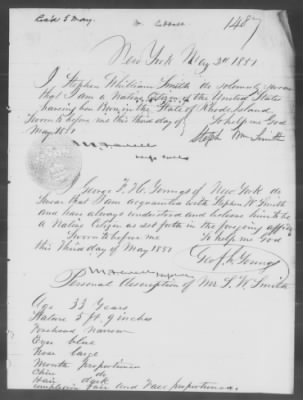 Rec'd 5 May.
1487
New York May 3d 1851
I Stephen William Smith do solemnly swear
that I am a Native Citizen of the United States
having been Born in the State of Rhode Island
Sworn to before me this third day of So help me God
May 1851
Steph Wm Smith
George F. H. Youngs of New York do
Swear that I am acquainted with Stephen W Smith
and have always understood and believe him to be
a Native Citizen as set forth in the foregoing affidavit
Sworn to before me So help me God
this Third day of May 1851
Geo F. H. Youngs
Personal Description of Mr S. W Smith
Age 33 Years
Stature 5 ft. 9 inches
Forehead narrow
Eyes blue
Nose large
Mouth proportioned
Chin do
Hair dark
Complexion fair and Face proportioned.